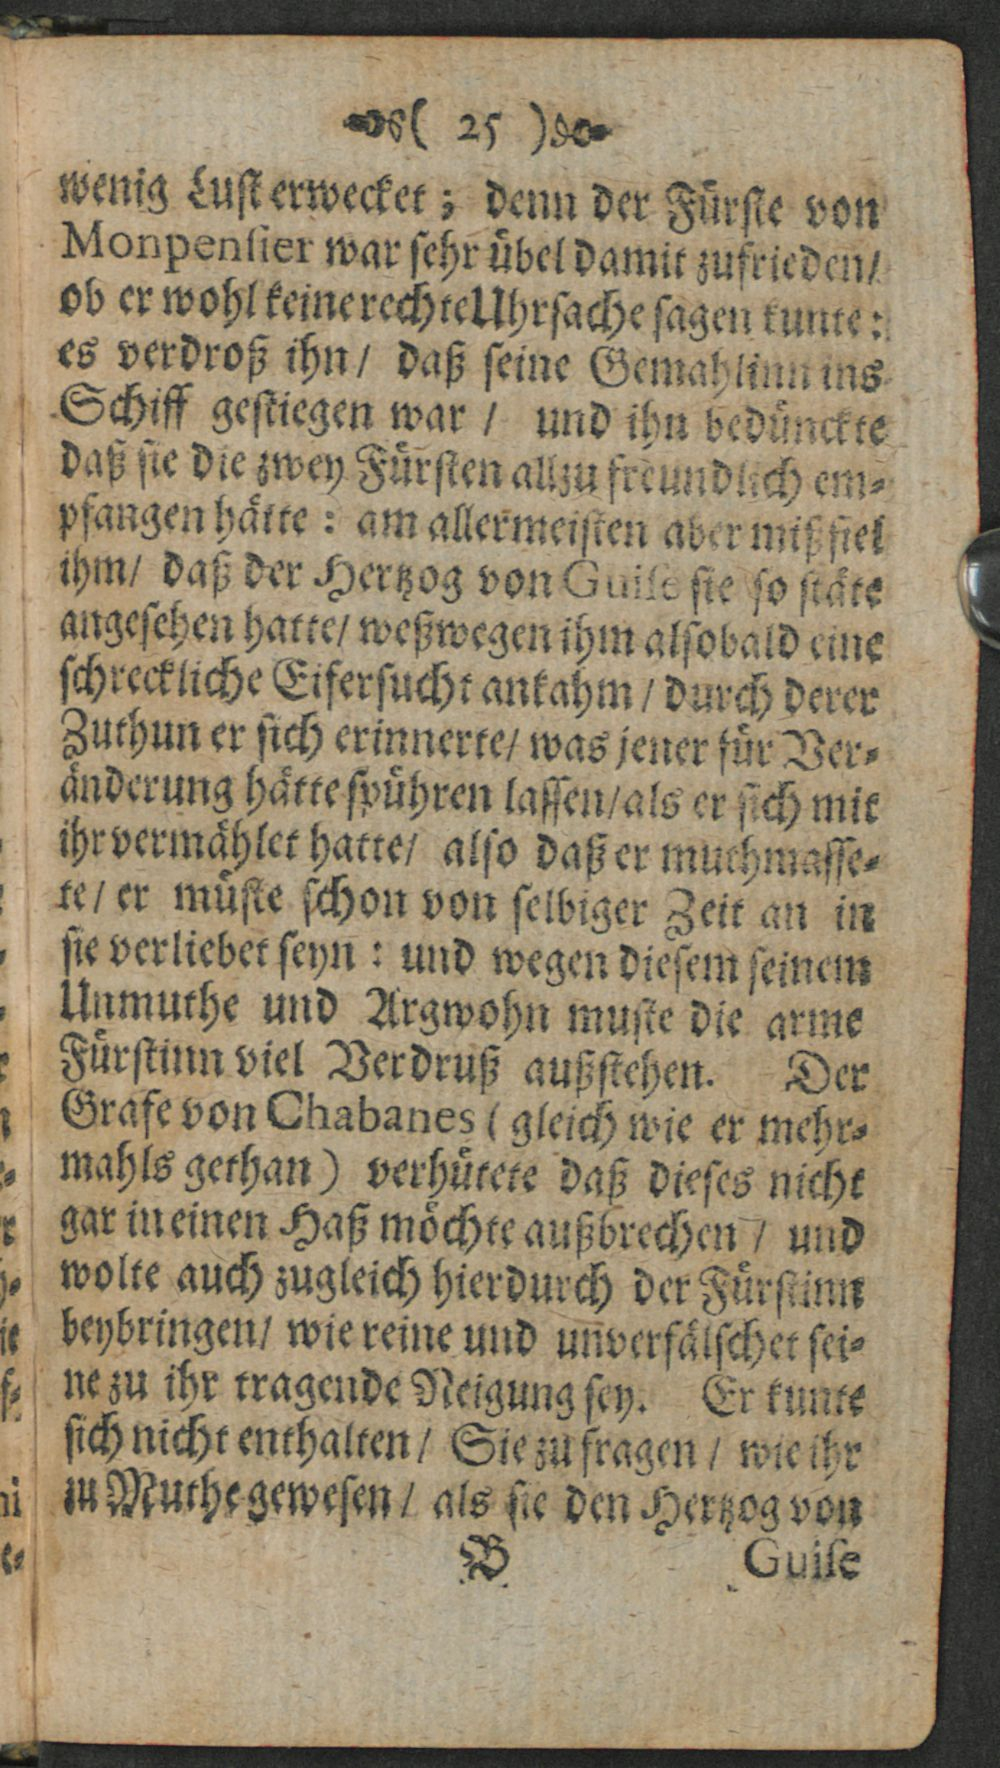 ( 25 )
wenig Lust erwecket; denn der Fürste von
Monpensier war sehr übel damit zufrieden/
ob er wohl keine rechte Uhrsache sagen kunte:
es verdroß ihn/ daß seine Gemahlinn ins
Schiff gestiegen war / und ihn bedünckte
daß sie die zwey Fürsten allzu freundlich em-
pfangen hätte: am allermeisten aber mißfiel
ihm/ daß der Hertzog von Guise sie so stäte
angesehen hatte/ weßwegen ihm alsobald eine
schreckliche Eifersucht ankahm / durch derer
Zuthun er sich erinnerte/ was jener für Ver-
änderung hätte spühren lassen/ als er sich mit
ihr vermählet hatte/ also daß er muthmasse-
te/ er müste schon von selbiger Zeit an in
sie verliebet seyn: und wegen diesem seinem
Unmuthe und Argwohn muste die arme
Fürstinn viel Verdruß außstehen. Der
Grafe von Chabanes (gleich wie er mehr-
mahls gethan) verhütete daß dieses nicht
gar in einen Haß möchte außbrechen / und
wolte auch zugleich hierdurch der Fürstinn
beybringen/ wie reine und unverfälschet sei-
ne zu ihr tragende Neigung sey. Er kunte
sich nicht enthalten/ Sie zu fragen / wie ihr
zu Muthe gewesen / als sie den Hertzog von
B Guise